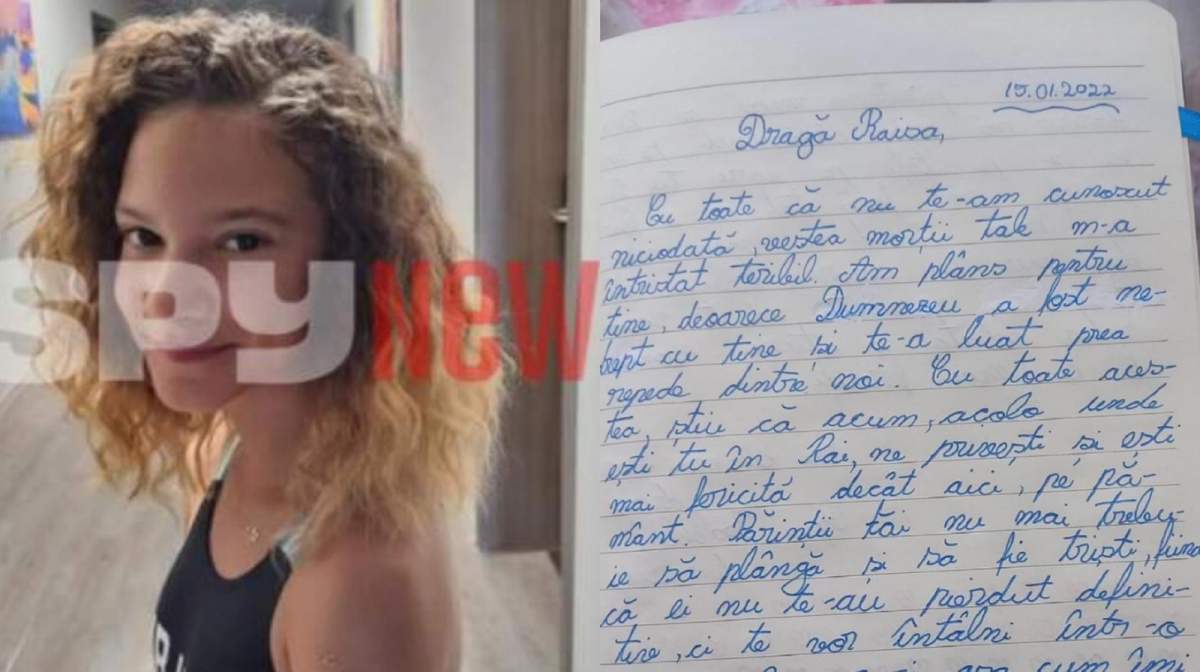 SPY NEW
15.01.2022
Dragă Raisa,
Cu toate că nu te-am cunoscut
niciodată, vestea morții tale m-a
întristat teribil. Am plâns pentru
tine, deoarece Dumnezeu a fost ne-
rept cu tine și te-a luat prea
repede dintre noi. Cu toate aces-
tea, știu că acum, acolo unde
ești tu în Rai, ne privești și ești
mai fericită decât aici, pe pă-
mânt. Părinții tăi nu mai trebu-
ie să plângă și să fie triști, fiind
că ei nu te-au pierdut defini-
tiv, ci te vor întâlni într-o
cum îmi